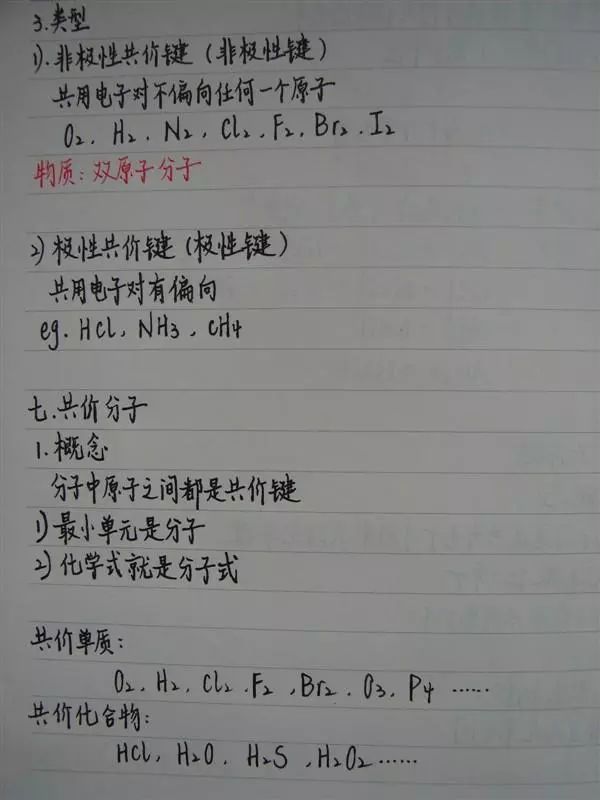 3.类型
1).非极性共价键(非极性键)
共用电子对不偏向任何一个原子
O2、H2、N2、Cl2、F2、Br2、I2
物质:双原子分子
2)极性共价键(极性键)
共用电子对有偏向
eg. HCl、NH3、CH4
七.共价分子
1.概念
分子中原子之间都是共价键
1)最小单元是分子
2)化学式就是分子式
共价单质:
O2、H2、Cl2、F2、Br2、O3、P4 ……
共价化合物:
HCl、H2O、H2S、H2O2……